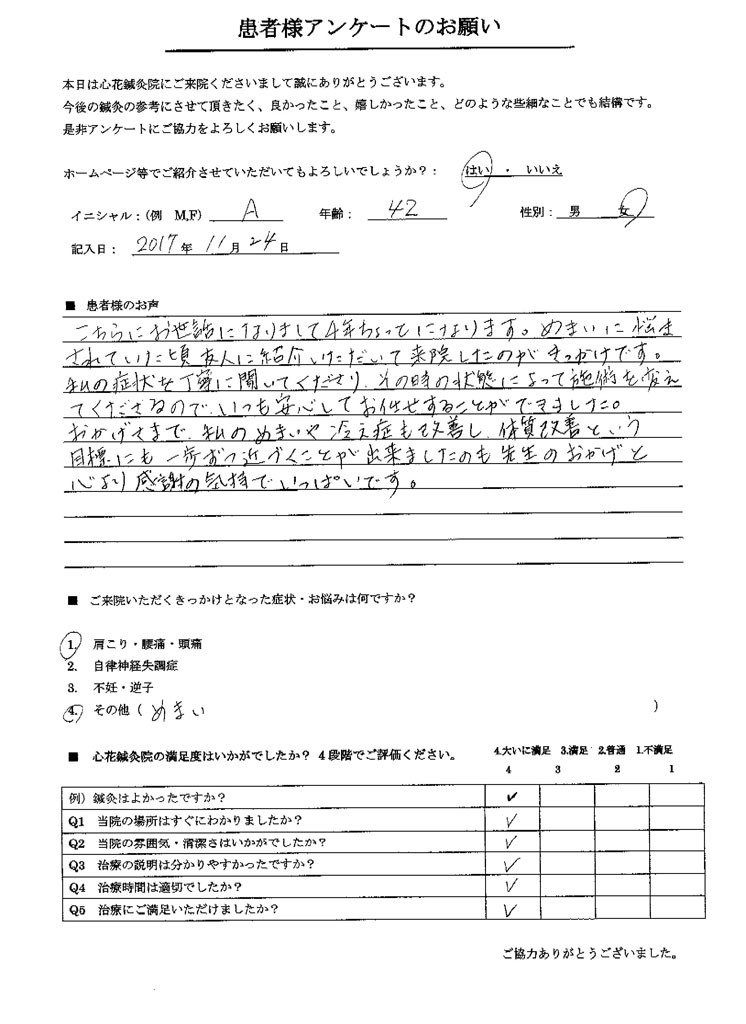 患者様アンケートのお願い
本日は心花鍼灸院にご来院くださいまして誠にありがとうございます。
今後の鍼灸の参考にさせて頂きたく、良かったこと、嬉しかったこと、どのような些細なことでも結構です。
是非アンケートにご協力をよろしくお願いします。
ホームページ等でご紹介させていただいてもよろしいでしょうか?: はい ・ いいえ
イニシャル:(例 M,F) A 年齢: 42 性別: 男 女
記入日: 2017年 11月 24日
■ 患者様のお声
こちらにお世話になりまして4年ちょっとになります。めまいに悩ま
されていた頃友人に紹介いただいて来院したのがきっかけです。
私の症状を丁寧に聞いてくださり、その時の状態によって施術を変え
てくださるので、いつも安心してお任せすることができました。
おかげさまで、私のめまいや冷え症も改善し、体質改善という
目標にも一歩ずつ近づくことが出来ましたのも先生のおかげと
心より感謝の気持でいっぱいです。
■ ご来院いただくきっかけとなった症状・お悩みは何ですか?
1. 肩こり・腰痛・頭痛
2. 自律神経失調症
3. 不妊・逆子
4. その他 ( めまい )
■ 心花鍼灸院の満足度はいかがでしたか? 4段階でご評価ください。 4.大いに満足 3.満足 2.普通 1.不満足
4 3 2 1
例) 鍼灸はよかったですか? ✓
Q1 当院の場所はすぐにわかりましたか? ✓
Q2 当院の雰囲気・清潔さはいかがでしたか? ✓
Q3 治療の説明は分かりやすかったですか? ✓
Q4 治療時間は適切でしたか? ✓
Q5 治療にご満足いただけましたか? ✓
ご協力ありがとうございました。